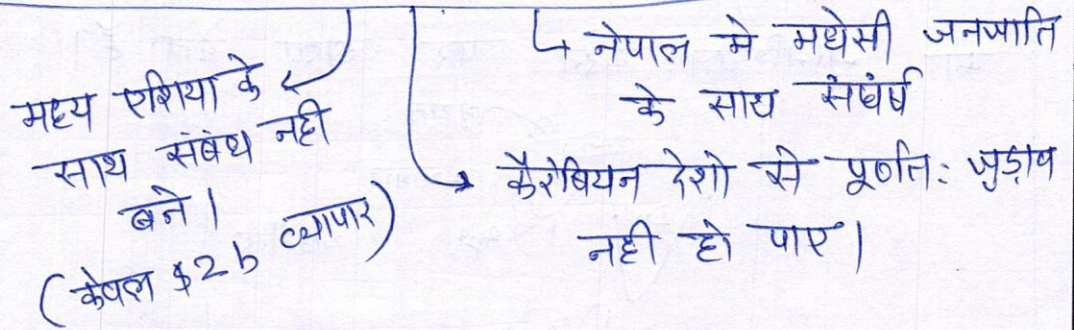 मध्य एशिया के
साथ संबंध नही
बने।
(केवल $2 b व्यापार)
↳ नेपाल मे मधेसी जनजाति
के साथ संघंर्ष
→ कैरेबियन देशो से पूर्णत: जुड़ाव
नही हो पाए।